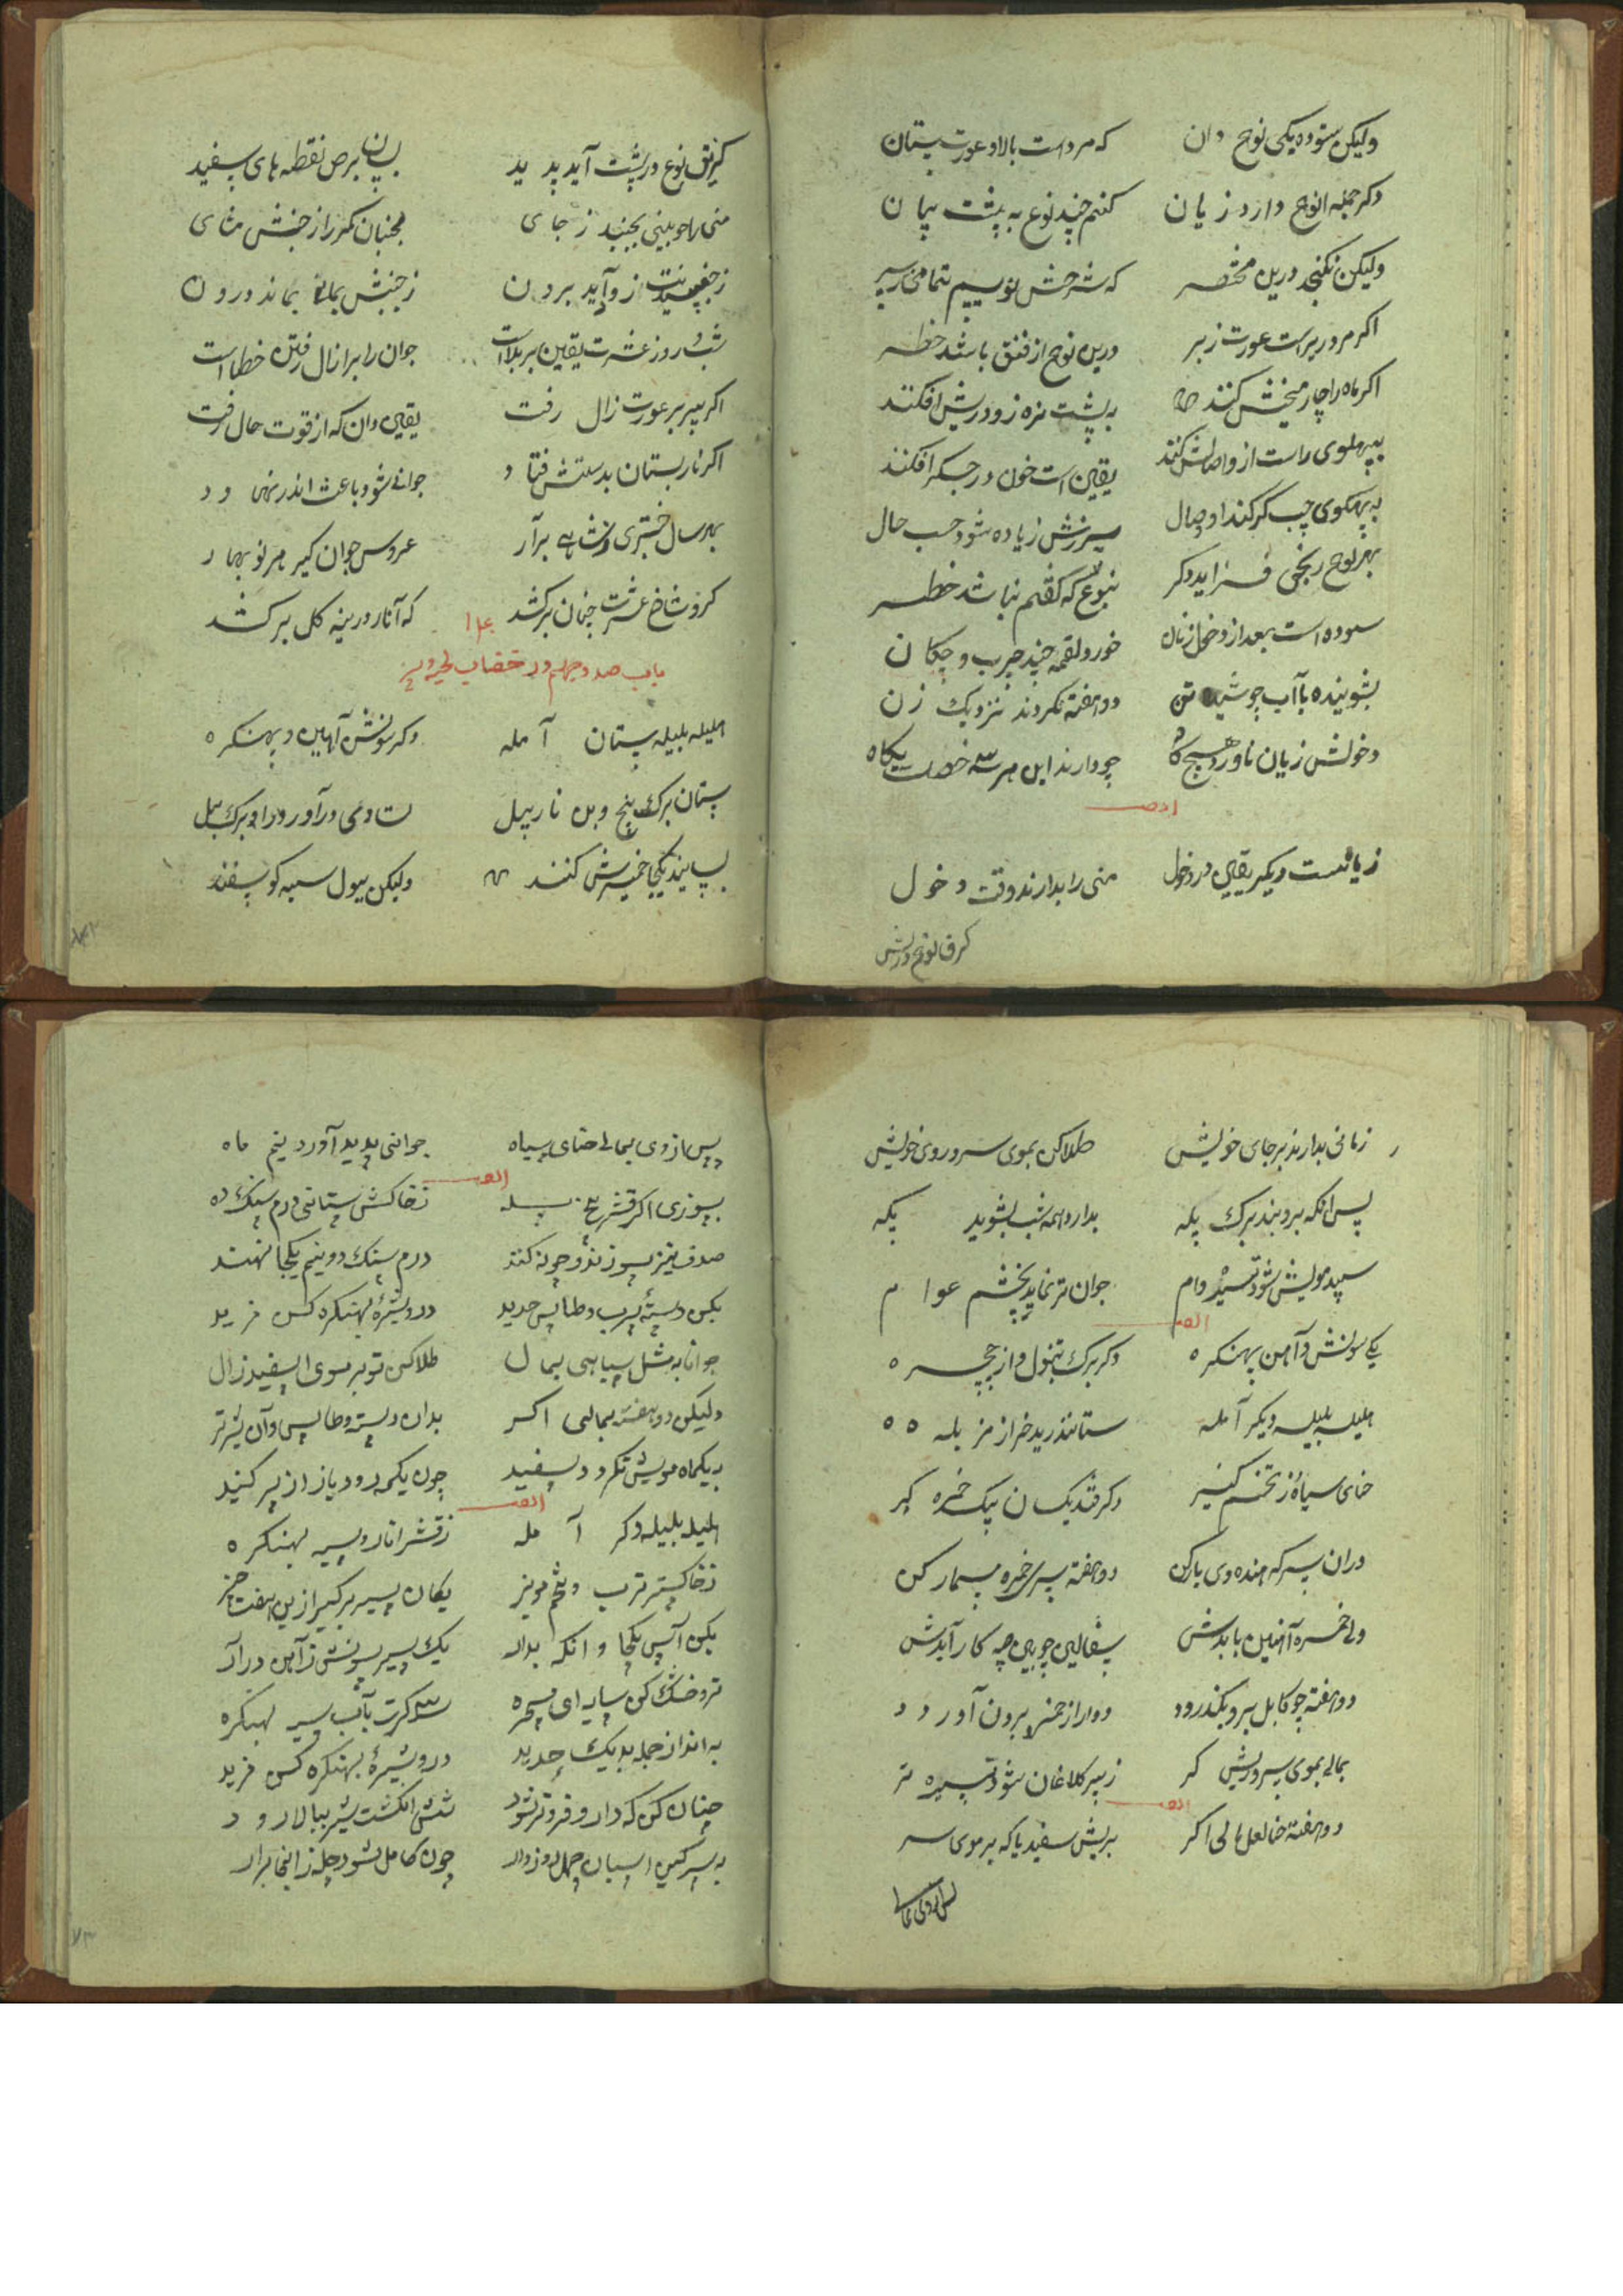 ولیکن ستوده یکی نوع دان که مرد است بالا و عورت ستان
دکر جمله انوع دارد زیان کنم چند نوع به پشت بیان
ولیکن نکنجد درین مختصر که شرحش نویسیم تمامی
اکر مرد زیر است عورت زبر درین نوع از فتق باشد خطر
اکر ماه را چار میخش کنند به پشت مزه زود ریش افکنند
بپهلوی راست از واصلش کنند یقین است خون در جکر افکنند
به پهلوی چپ کر کند او وصال سپرزش زیاده شود حسب حال
بهر نوع رنجی فزاید دکر بنوع که کفتم نباشد خطر
ستوده است بعد از دخل زنان خورد لقمه چند چرب و چکان
بشوینده با آب جوشیده تن دو هفته نکردند نزدیک زن
دخولش زیان ناورد هیچ کاه چو دارند این هر سه خصلت نکاه
ایضا
زیانست دیکر یقین در دخول منی را بدارند وقت دخول
کزین نوع در پشت
کزین نوع در پشت آید پدید بسان برص نقطه های سفید
منی را چو بینی بجنبد ز جای مجنبان کمر را ز جنبش
ز جنبیدنت زو آید برون ز جنبش بمانی بماند درون
شب و روز عشرت یقین بر بلاست جوان را بر زال رفتن خطاست
اکر پیر بر عورت زال رفت یقین دان که از قوت حال رفت
اکر نار بستان بدستش فتاد جوانی شود باعث اندر نهاد
بهر سال دختری برآر عروس جوان کیر هر نو بهار
کزو شاخ عشرت چنان برکشد که آثار دیرینه کل برکشد
باب صد و چهلم در خضاب
هلیله بلیله ستان آمله دکر سونش آهن و بهنکره
ستان برک بیخ و بن نارییل مساوی درآور در او برک بیل
بسایند یکجا خمیرش کنند ولیکن ببول سیه کوسفند
زمانی بدارند بر جای خویش طلا کن بموی سر و روی خویش
پس آنکه برو بند برک یکه بدارد همه شب بشوید یکه
سپید مویش شود تیره وام جوان تر نماید بچشم عوام
ایضا
یکی سونش آهن بهنکره دکر برک تنبول و از چچره
هلیله بلیله دیکر آمله ستانند رید خر از مزبله
حنای سیاه ز تخم کنیر دکر قند یکسان یک خمره کیر
در آن سرکه هندوی بار کن دو هفته سر خمره مسمار کن
ولی خمره آهنین بایدش سفالین چوبین چه کار آیدش
دو هفته چو کامل برو بکذرود دوا را ز خمره برون آورد
بمالی بموی سر و ریش کر ز پر کلاغان شود تیره تر
ایضا
دو هفته حنا لعل مالی اکر بریش سفید یا که بر موی سر
پس از وی بمالی
پس از وی بمالی حنای سیاه جوانی پدید آورد نیم ماه
ایضا
بسوزی اکر قشر ز خاکش ستانی درم سنک ده
صدف نیز بسوزند و چونه کنند درم سنک دو نیم یکجا نهند
بکن دسته سرب و طاس حدید در و شیره بهنکره کن مزید
جوانا به مثل سیاهی بمال طلا کن تو بر موی اسفید زال
ولیکن دو هفته بمالی اکر بدان دسته و طاس وآن شیر تر
بیکماه مویش نکردد سفید چون یکمه رود باز از سر کنید
ایضا
هلیله بلیله دکر آمله ز قشر انار و سیر بهنکره
ز خاکستر ترب و تخم مویز یکان سیر برکیر ازین هفت چیز
بکن آس یکجا و آنکه بدار یک سیر سونش ز آهن درآر
تر و خشک کن سایه ای پسره سه کرت بآب سیر بهنکره
به انداز جمله بدیک حدید درو شیره بهنکره کن مزید
چنان کن که دارو فروتر شود شش انکشت شیر ببالا رود
به سرکین اسپان چهل روز دار چون کامل شود چله زانجا برار